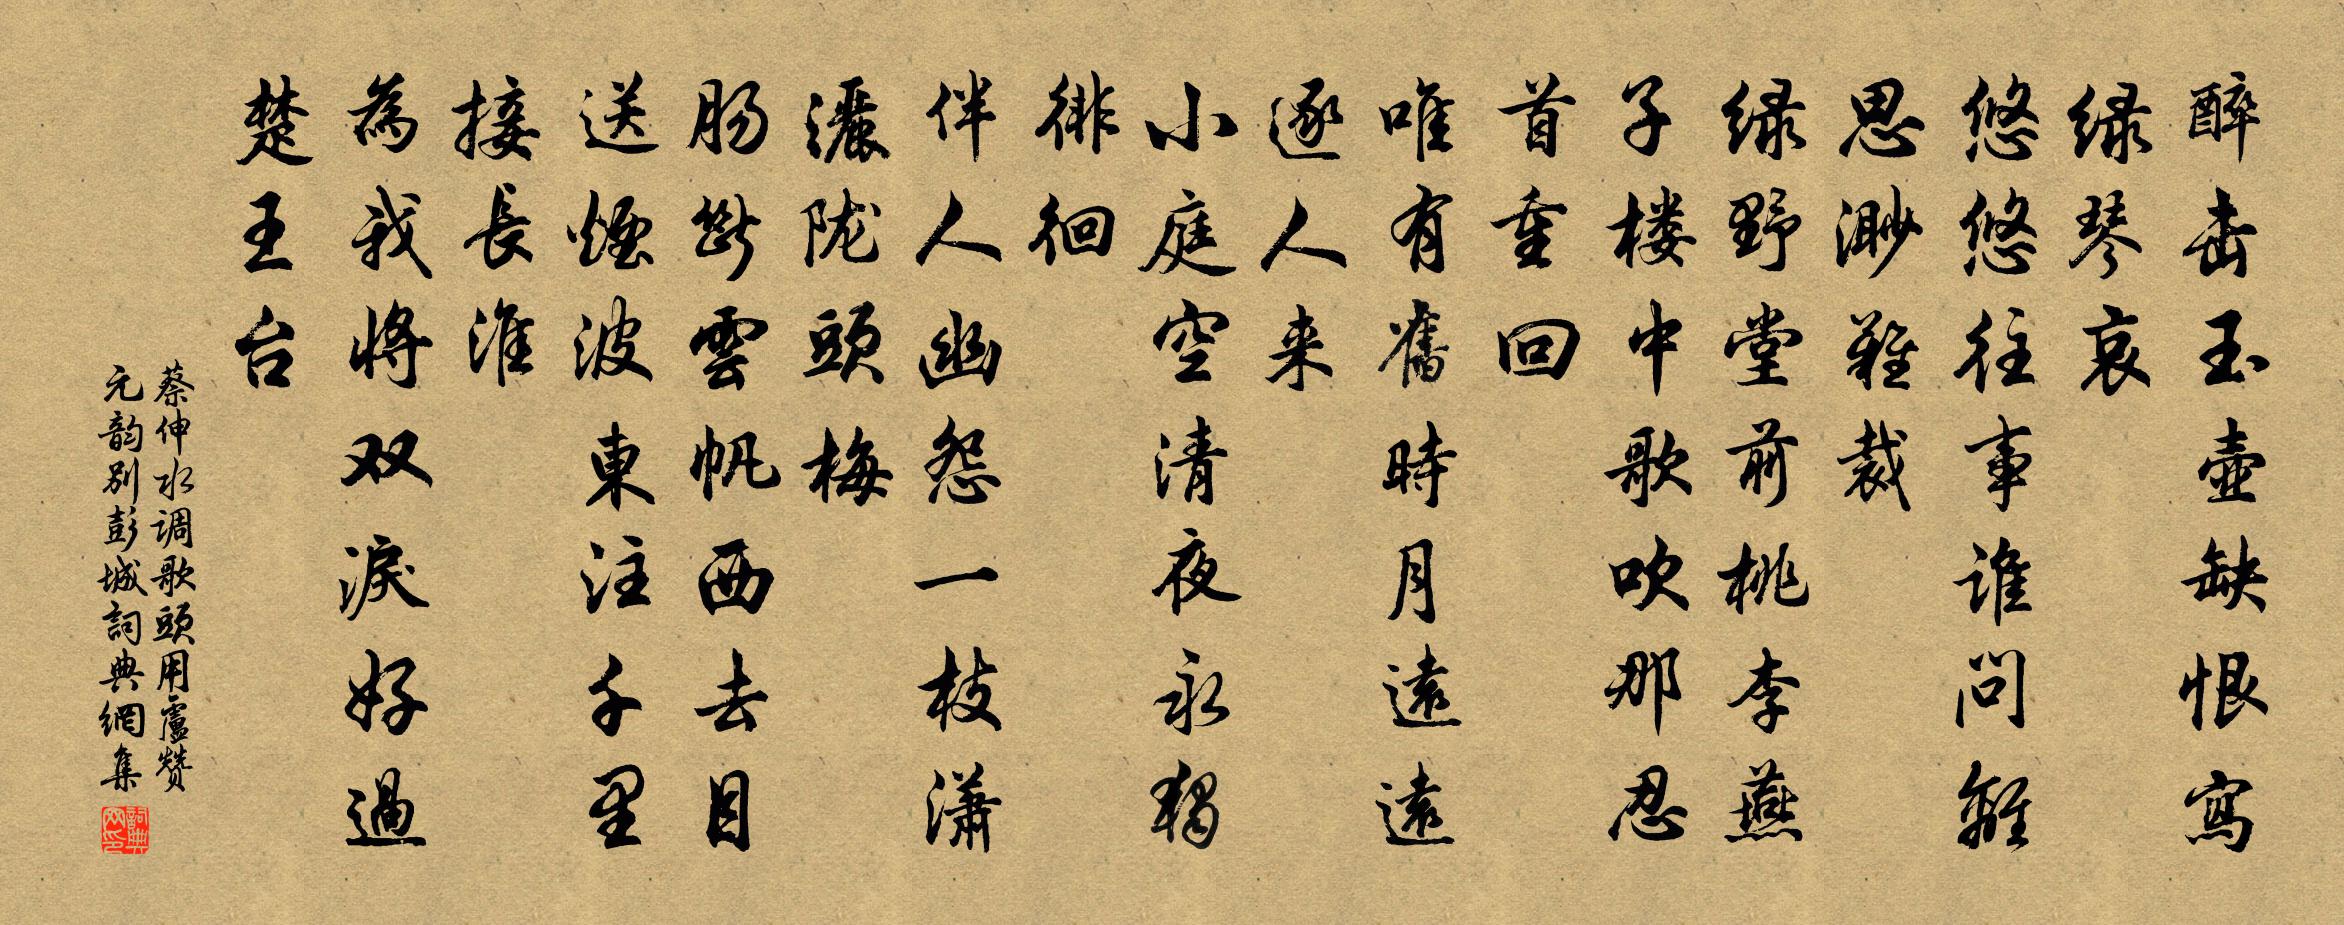 醉击玉壶缺恨写
绿琴哀
悠悠往事谁问离
思渺难裁
绿野堂前桃李燕
子楼中歌吹那忍
首重回
唯有旧時月远远
逐人来
小庭空清夜永独
徘徊
伴人幽怨一枝潇
灑陇頭梅
肠断雲帆西去目
送烟波東注千里
接長淮
為我将双淚好過
楚王台
蔡伸水调歌頭用盧赞
元韵别彭城詞典網集
詞典网印